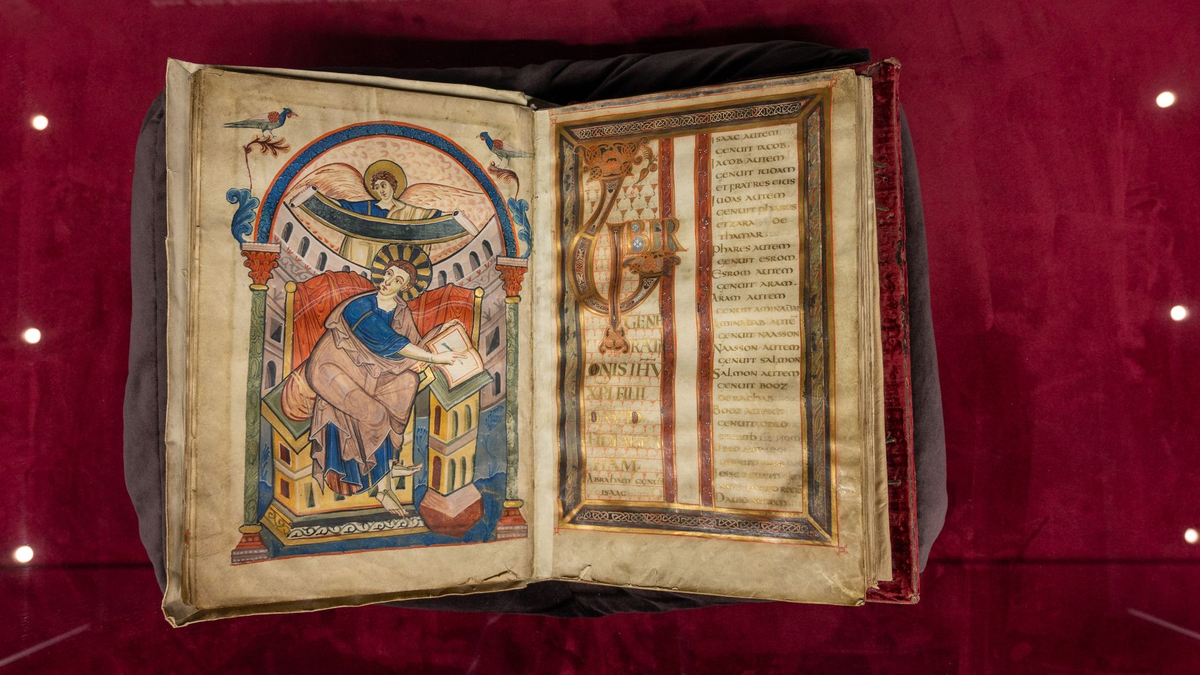 LIBER
GENE
RATI
ONIS IHV
XPI FILII
DAVID
FILII ABRA
HAM.
ABRAHAM GENUIT
ISAAC
ISAAC AUTEM
GENUIT IACOB.
IACOB AUTEM
GENUIT IUDAM
ET FRATRES EIUS
IUDAS AUTEM
GENUIT PHARES
ET ZARA DE
THAMAR.
PHARES AUTEM
GENUIT ESROM.
ESROM AUTEM
GENUIT ARAM.
ARAM AUTEM
GENUIT AMINADAB
AMINADAB AUTE
GENUIT NAASSON
NAASSON AUTEM
GENUIT SALMON
SALMON AUTEM
GENUIT BOOZ
DE RACHAB
BOOZ AUTEM
GENUIT